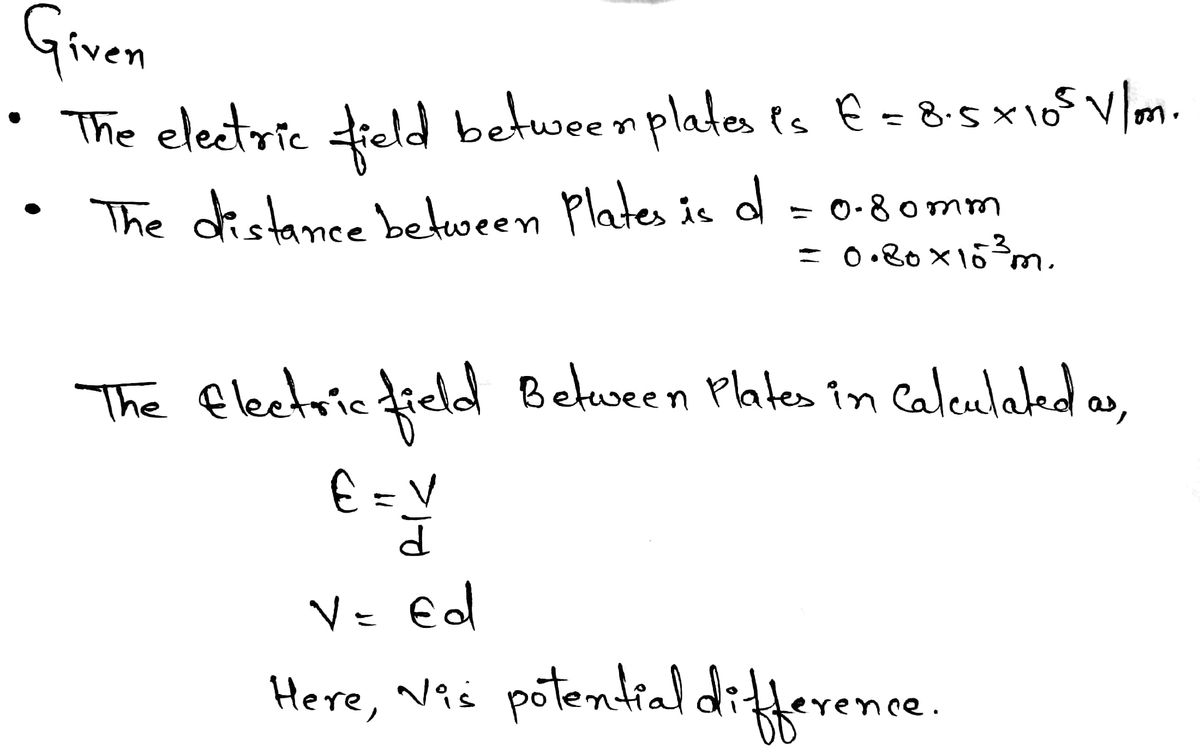 Given
• The electric field between plates is E = 8.5 × 10⁵ V/m.
• The distance between Plates is d = 0.80mm
= 0.80 × 10⁻³m.
The Electric field Between Plates in Calculated as,
E = V/d
V = Ed
Here, V is potential difference.